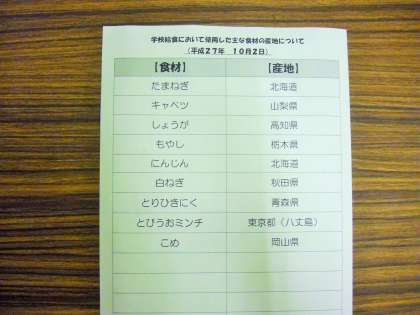 学校給食において使用した主な食材の産地について
(平成27年 10月2日)
【食材】 【産地】
たまねぎ 北海道
キャベツ 山梨県
しょうが 高知県
もやし 栃木県
にんじん 北海道
白ねぎ 秋田県
とりひきにく 青森県
とびうおミンチ 東京都(八丈島)
こめ 岡山県